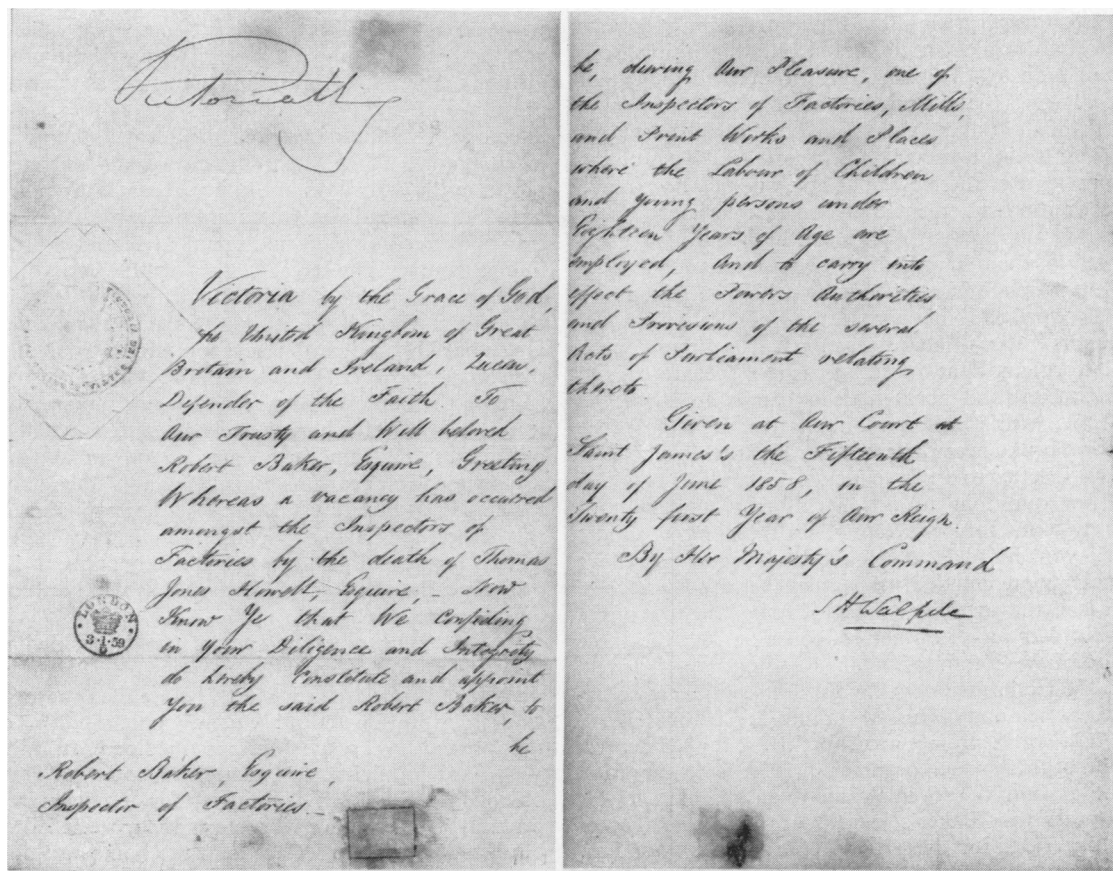 Victoria R
Victoria by the Grace of God,
of the United Kingdom of Great
Britain and Ireland, Queen,
Defender of the Faith. To
Our Trusty and Well beloved
Robert Baker, Esquire, Greeting
Whereas a vacancy has occurred
amongst the Inspectors of
Factories by the death of Thomas
Jones Howell, Esquire, – Now
Know Ye that We Confiding
in your Diligence and Integrity
do hereby Constitute and appoint
You the said Robert Baker, to
be
Robert Baker, Esquire,
Inspector of Factories –
LONDON
be, during Our Pleasure, one of
the Inspectors of Factories, Mills,
and Print Works and Places
where the Labour of Children
and young persons under
Eighteen Years of Age are
employed, And to carry into
effect the Powers Authorities
and Provisions of the several
Acts of Parliament relating
thereto
Given at Our Court at
Saint James's the Fifteenth
day of June 1858, in the
Twenty first Year of Our Reign.
By Her Majesty's Command
S H Walpole